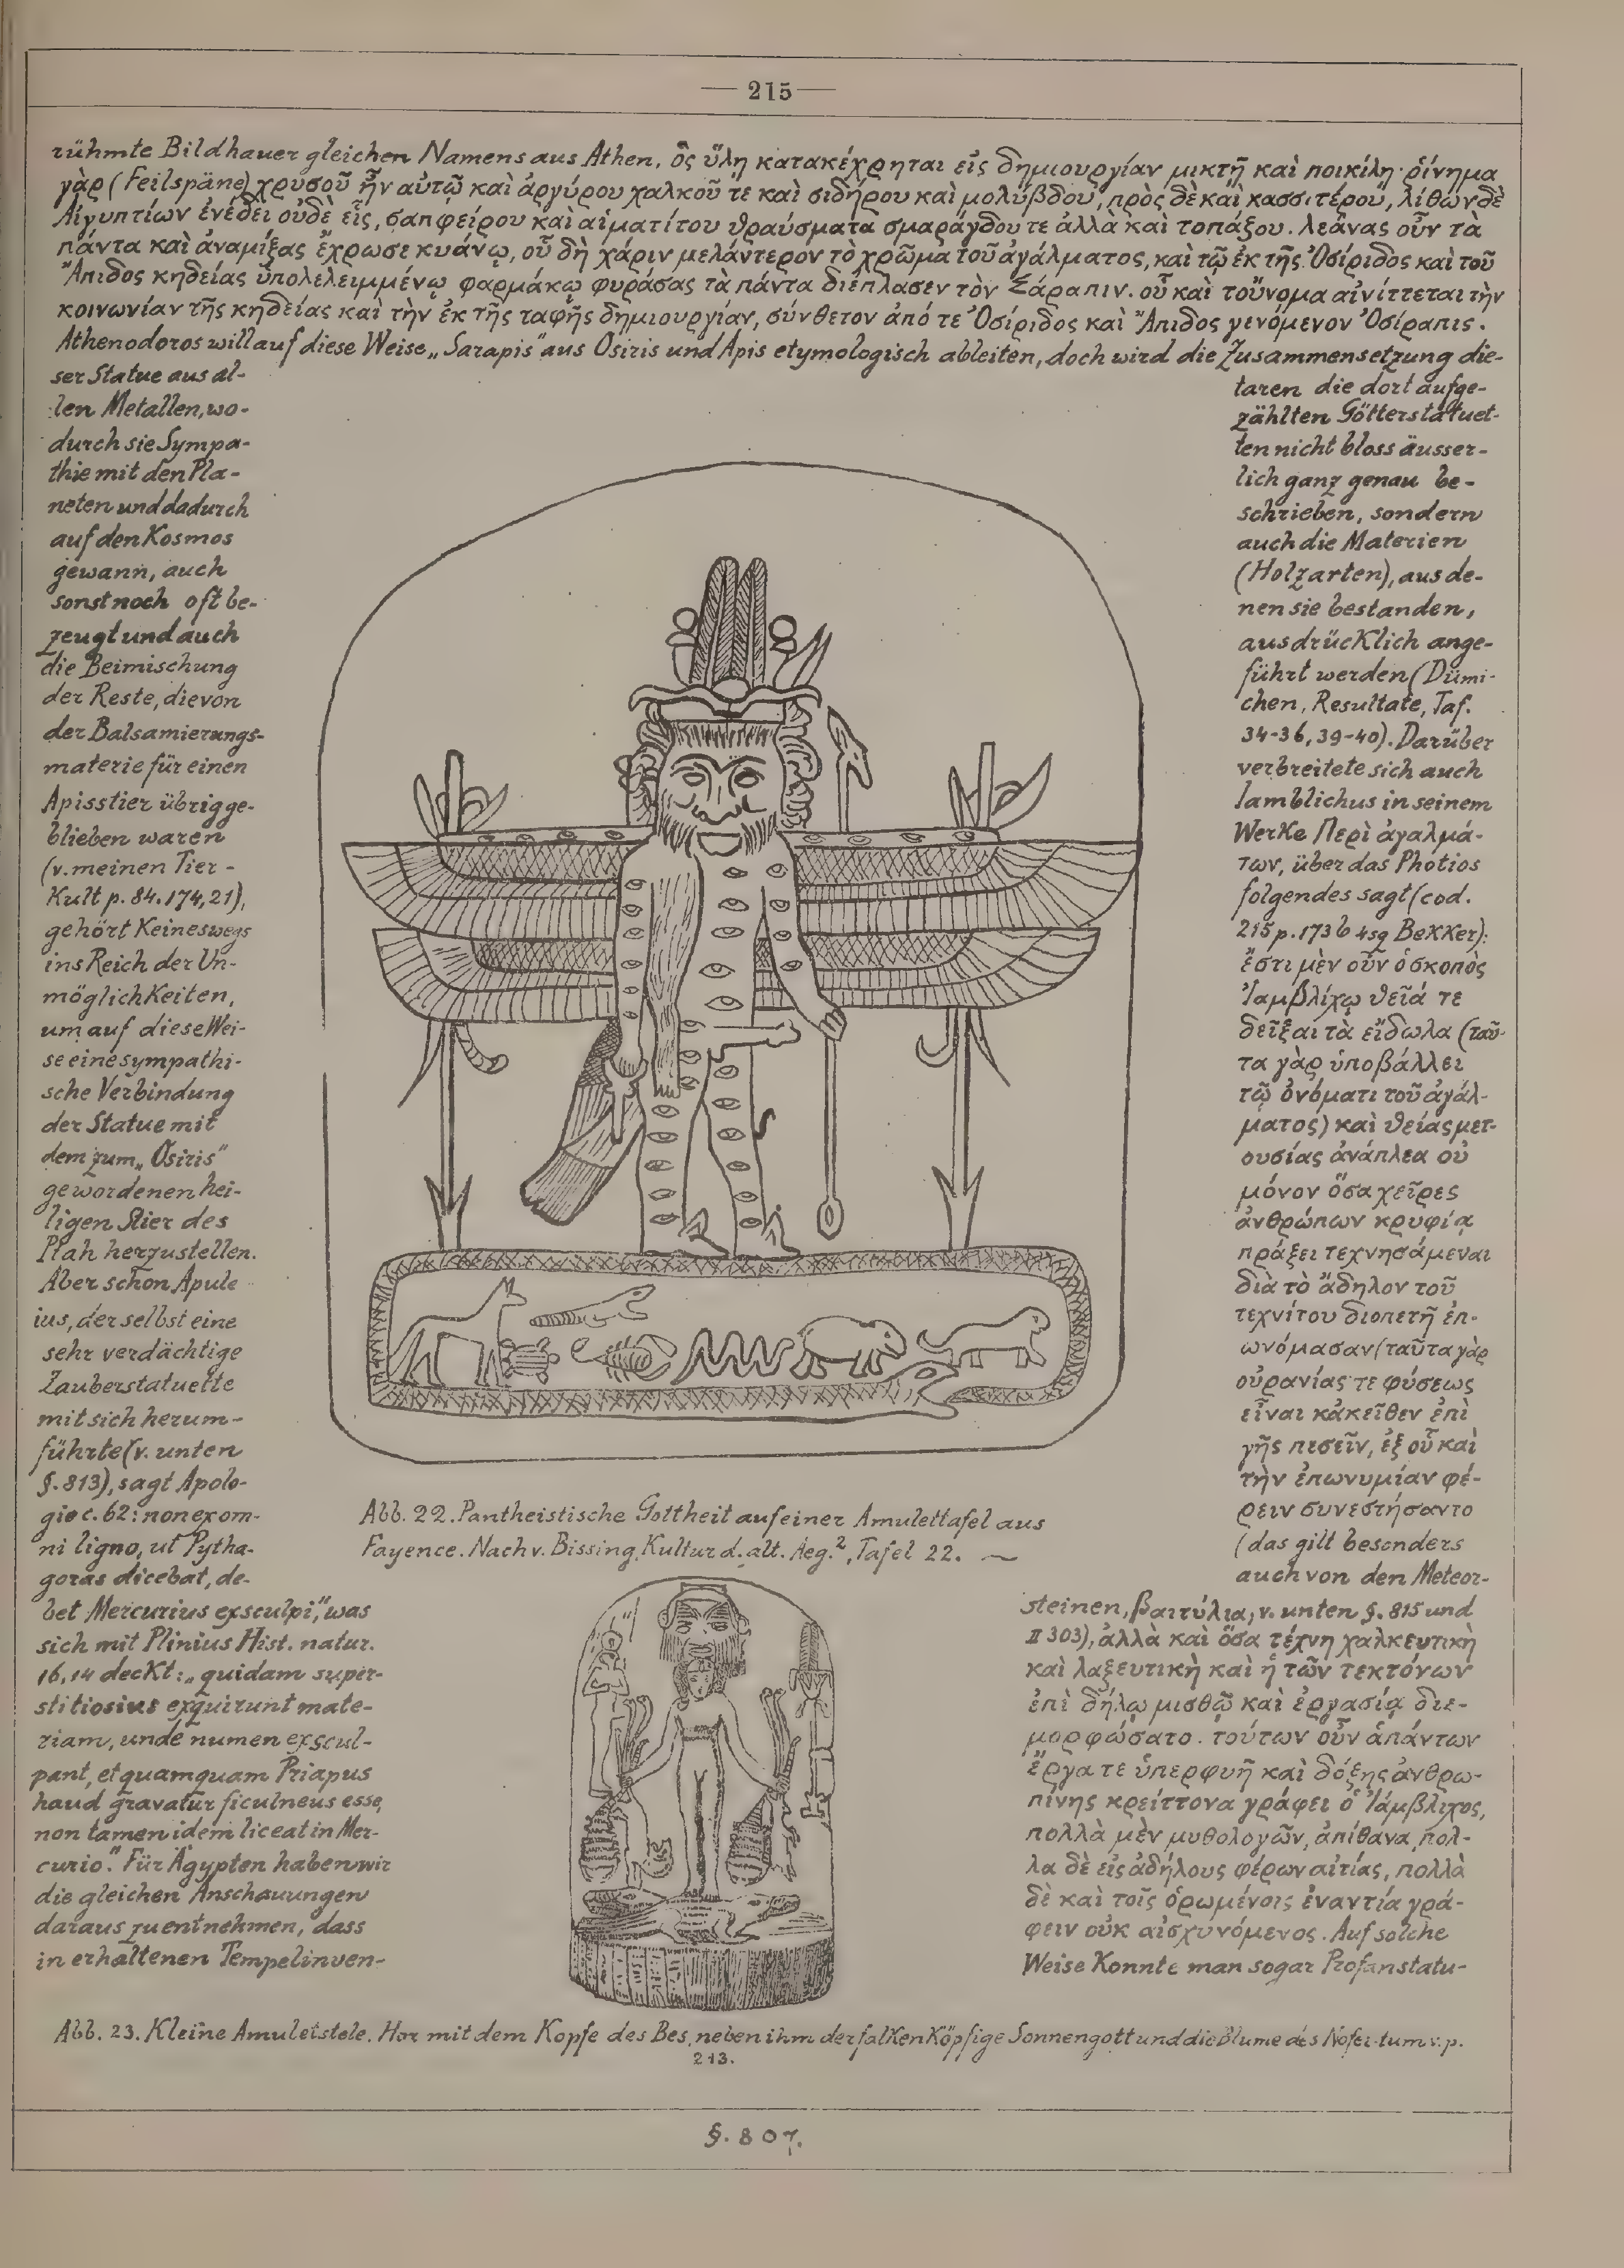 — 215 —
rühmte Bildhauer gleichen Namens aus Athen, ὃς ὕλῃ κατακέχρηται εἰς δημιουργίαν μικτῇ καὶ ποικίλῃ· ῥίνημα
γὰρ (Feilspäne) χρυσοῦ ἦν αὐτῷ καὶ ἀργύρου χαλκοῦ τε καὶ σιδήρου καὶ μολύβδου, πρὸς δὲ καὶ κασσιτέρου, λίθων δὲ
Αἰγυπτίων ἐνέδει οὐδὲ εἷς, σαπφείρου καὶ αἱματίτου θραύσματα σμαράγδου τε ἀλλὰ καὶ τοπάξου. λεάνας οὖν τὰ
πάντα καὶ ἀναμίξας ἔχρωσε κυάνῳ, οὗ δὴ χάριν μελάντερον τὸ χρῶμα τοῦ ἀγάλματος, καὶ τῷ ἐκ τῆς Ὀσίριδος καὶ τοῦ
Ἄπιδος κηδείας ὑπολελειμμένῳ φαρμάκῳ φυράσας τὰ πάντα διέπλασεν τὸν Σάραπιν. οὗ καὶ τοὔνομα αἰνίττεται τὴν
κοινωνίαν τῆς κηδείας καὶ τὴν ἐκ τῆς ταφῆς δημιουργίαν, σύνθετον ἀπό τε Ὀσίριδος καὶ Ἄπιδος γενόμενον Ὀσίραπις.
Athenodoros will auf diese Weise „Sarapis" aus Osiris und Apis etymologisch ableiten, doch wird die Zusammensetzung die-
ser Statue aus al-
len Metallen, wo-
durch sie Sympa-
thie mit den Pla-
neten und dadurch
auf den Kosmos
gewann, auch
sonst noch oft be-
zeugt und auch
die Beimischung
der Reste, die von
der Balsamierungs-
materie für einen
Apisstier übrigge-
blieben waren
(v. meinen Tier-
Kult p. 84. 174, 21),
gehört Keineswegs
ins Reich der Un-
möglichKeiten,
um auf diese Wei-
se eine sympathi-
sche Verbindung
der Statue mit
dem zum „Osiris"
gewordenen hei-
ligen Stier des
Ptah herzustellen.
Aber schon Apule-
ius, der selbst eine
sehr verdächtige
Zauberstatuette
mit sich herum-
führte (v. unten
§. 813), sagt Apolo-
gie c. 62: non ex om-
ni ligno, ut Pytha-
goras dicebat, de-
bet Mercurius exsculpi," was
sich mit Plinius Hist. natur.
16, 14 decKt: „quidam super-
stitiosius exquirunt mate-
riam, unde numen exscul-
pant, et quamquam Priapus
haud gravatur ficulneus esse,
non tamen idem liceat in Mer-
curio." Für Ägypten haben wir
die gleichen Anschauungen
daraus zu entnehmen, dass
in erhaltenen Tempelinven-
taren die dort aufge-
zählten Götterstatuet-
ten nicht bloss äusser-
lich ganz genau be-
schrieben, sondern
auch die Materien
(Holzarten), aus de-
nen sie bestanden,
ausdrücKlich ange-
führt werden (Dümi-
chen, Resultate, Taf.
34-36, 39-40). Darüber
verbreitete sich auch
Iamblichus in seinem
WerKe Περὶ ἀγαλμά-
των, über das Photios
folgendes sagt (cod.
215 p. 173 b 4 sq BeKKer):
ἔστι μὲν οὖν ὁ σκοπὸς
Ἰαμβλίχῳ θεῖά τε
δεῖξαι τὰ εἴδωλα (ταῦ-
τα γὰρ ὑποβάλλει
τῷ ὀνόματι τοῦ ἀγάλ-
ματος) καὶ θείας μετ-
ουσίας ἀνάπλεα οὐ
μόνον ὅσα χεῖρες
ἀνθρώπων κρυφίᾳ
πράξει τεχνησάμεναι
διὰ τὸ ἄδηλον τοῦ
τεχνίτου διοπετῆ ἐπ-
ωνόμασαν (ταῦτα γὰρ
οὐρανίας τε φύσεως
εἶναι κἀκεῖθεν ἐπὶ
γῆς πεσεῖν, ἐξ οὗ καὶ
τὴν ἐπωνυμίαν φέ-
ρειν συνεστήσαντο
(das gilt besonders
auch von den Meteor-
steinen, βαιτύλια, v. unten §. 815 und
II 303), ἀλλὰ καὶ ὅσα τέχνη χαλκευτικὴ
καὶ λαξευτικὴ καὶ ἡ τῶν τεκτόνων
ἐπὶ δήλῳ μισθῷ καὶ ἐργασίᾳ διε-
μορφώσατο. τούτων οὖν ἁπάντων
ἔργα τε ὑπερφυῆ καὶ δόξης ἀνθρω-
πίνης κρείττονα γράφει ὁ Ἰάμβλιχος,
πολλὰ μὲν μυθολογῶν, ἀπίθανα, πολ-
λα δὲ εἰς ἀδήλους φέρων αἰτίας, πολλὰ
δὲ καὶ τοῖς ὁρωμένοις ἐναντία γρά-
φειν οὐκ αἰσχυνόμενος. Auf solche
Weise Konnte man sogar Profanstatu-
Abb. 22. Pantheistische Gottheit auf einer Amulettafel aus
Fayence. Nach v. Bissing, Kultur d. alt. Aeg.², Tafel 22.
Abb. 23. Kleine Amuletstele. Hor mit dem Kopfe des Bes, neben ihm der falKenKöpfige Sonnengott und die Blume des Nofer-tum v. p.
213.
§. 807.